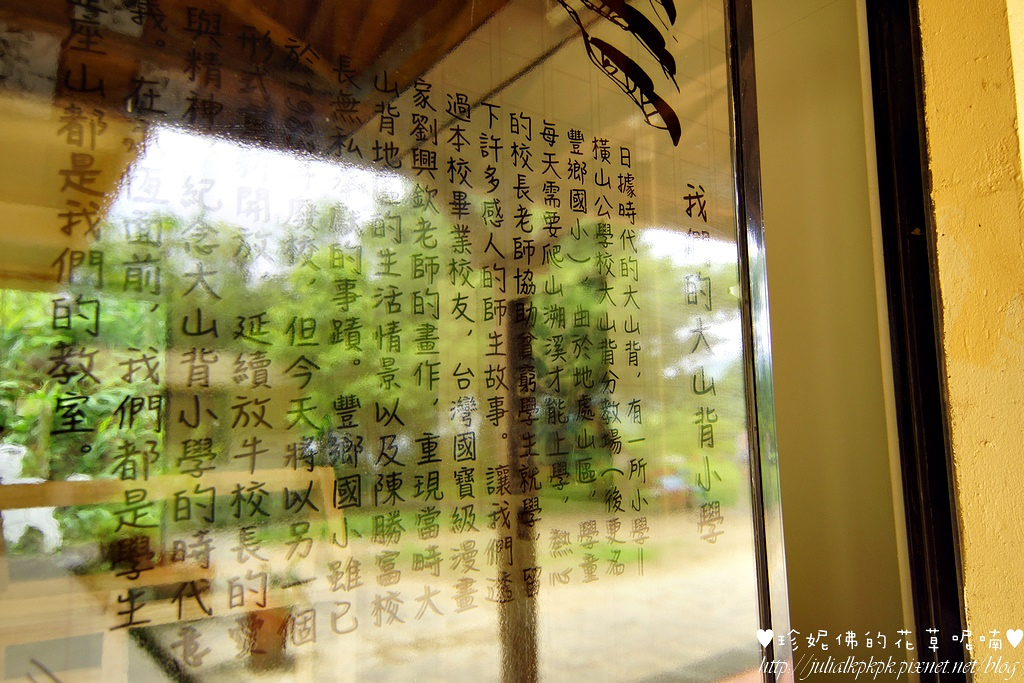 我們的大山背小學
日據時代的大山背，有一所小學＝
橫山公學校大山背分教場（後更名
豐鄉國小），由於地處山區，學童
每天需要爬山溯溪才能上學，熱心
的校長老師協助貧窮學生就學，留
下許多感人的師生故事。讓我們透
過本校畢業校友，台灣國寶級漫畫
家劉興欽老師的畫作，重現當時大
山背地區的生活情景以及陳勝富校
長無私奉獻的事蹟。豐鄉國小雖已
於198 年廢校，但今天將以另一個
形式 開放，延續放牛校長的愛
與精神，紀念大山背小學的時代意
義。在 恆面前，我們都是學生
整座山都是我們的教室。
♥珍妮佛的花草呢喃♥
http://julialkpkpk.pixnet.net/blog